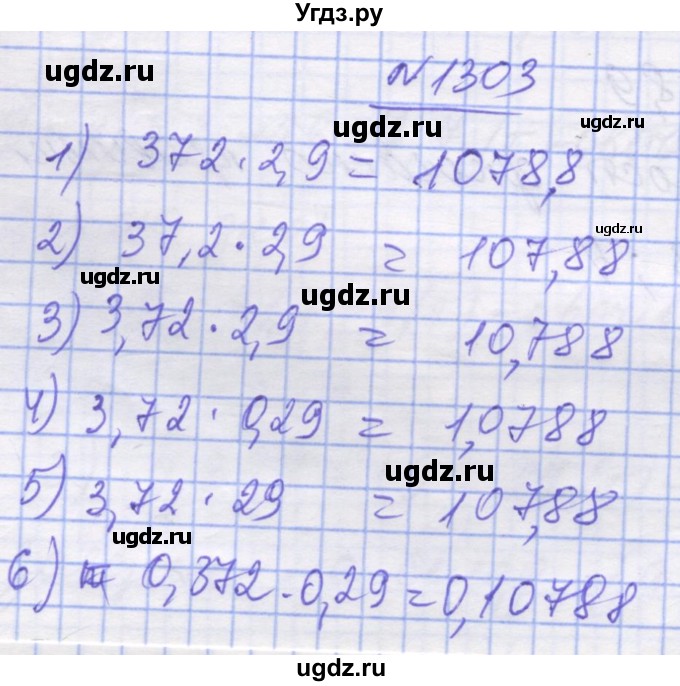 Угдз.ру
ugdz.ru
№1303
ugdz.ru
ugdz.ru
1) 372 · 2,9 = 1078,8
ugdz.ru
2) 37,2 · 2,9 = 107,88
ugdz.ru
ugdz.ru
3) 3,72 · 2,9 = 10,788
4) 3,72 · 0,29 = 1,0788
ugdz.ru
5) 3,72 · 29 = 107,88
ugdz.ru
6) 0,372 · 0,29 = 0,10788
ugdz.ru
ugdz.ru